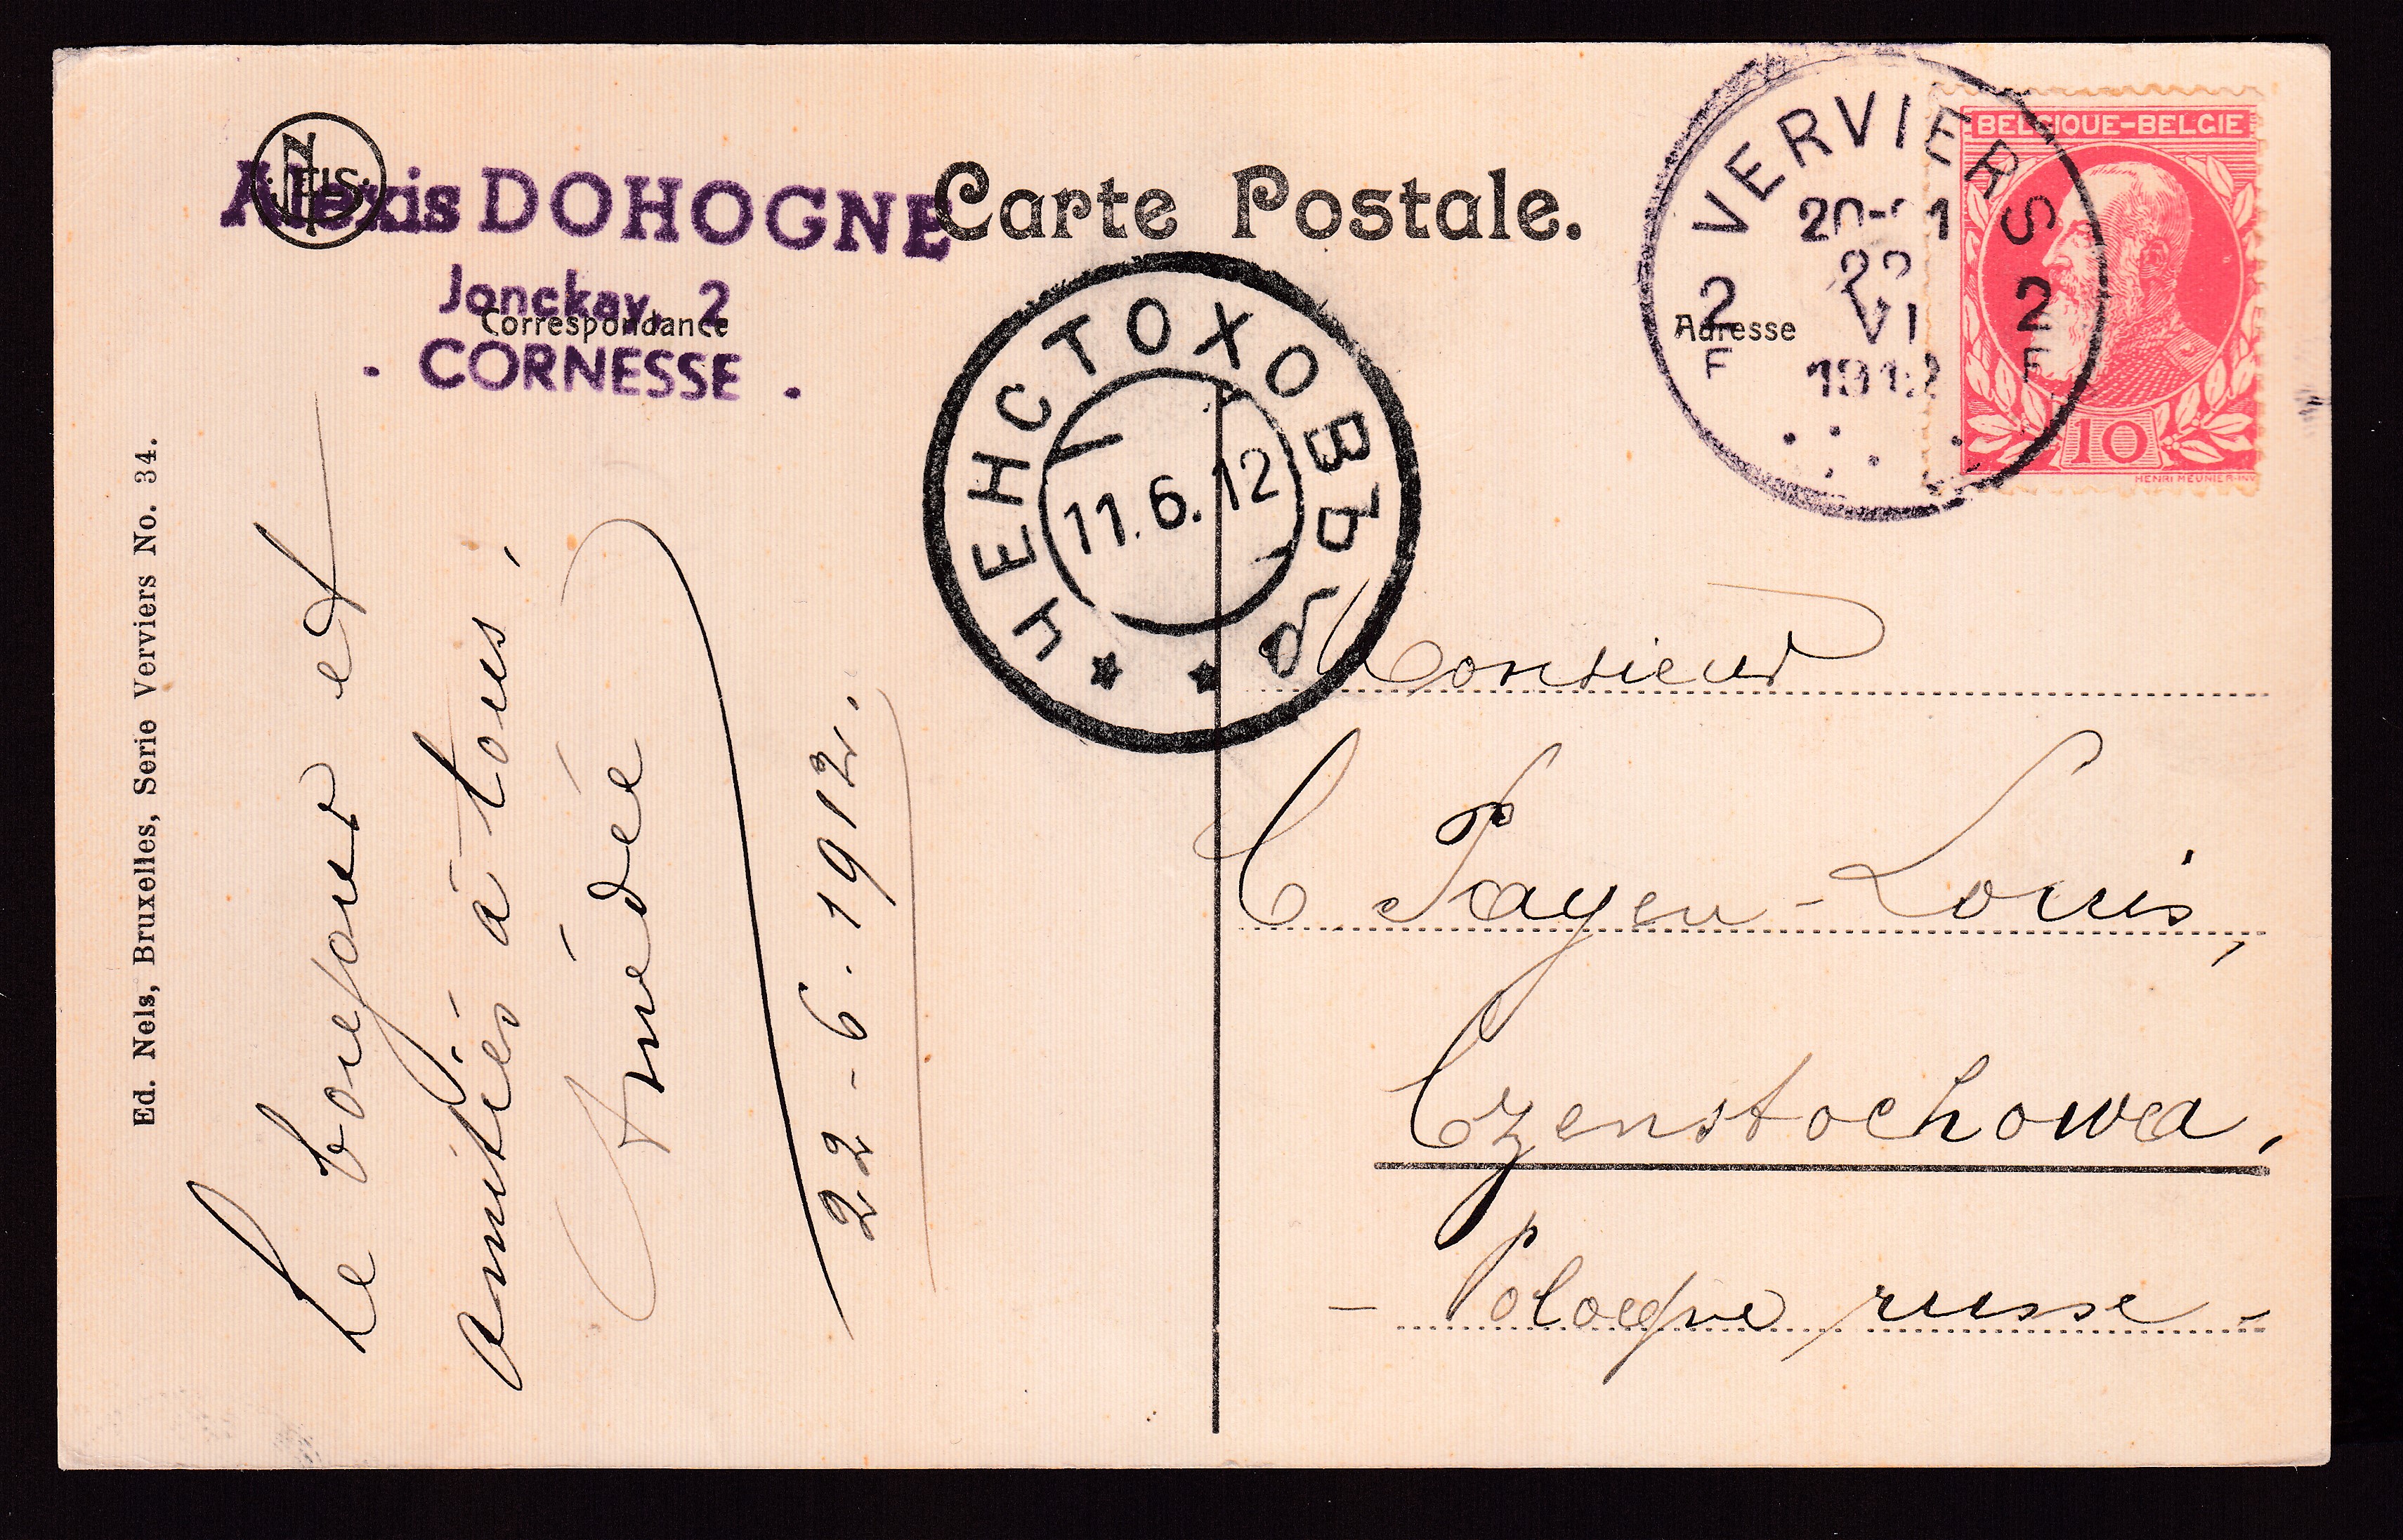 NELS
Alexis DOHOGNE
Jonckay, 2
. CORNESSE .
Carte Postale.
Correspondance
Adresse
VERVIERS
20-21
22
VI
1912
2 2
F F
BELGIQUE-BELGIE
10
HENRI MEUNIER-INV
ЧЕНСТОХОВЪ
11.6.12
Ed. Nels, Bruxelles, Serie Verviers No. 34.
Le bonjour et
amitiés à tous,
Amédée
22-6.1912.
Monsieur
C Payen-Louis,
Czenstochowa,
- Pologne russe -